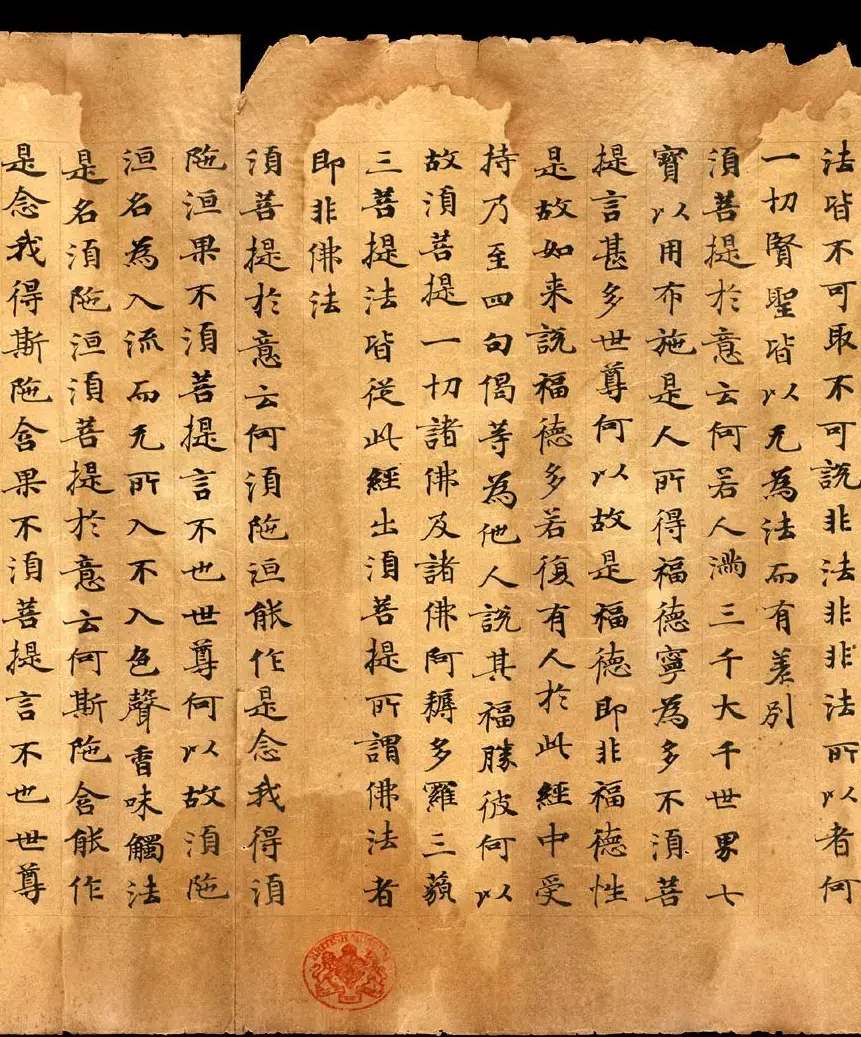 法皆不可取不可說非法非非法所以者何
一切賢聖皆以无為法而有差別
須菩提於意云何若人滿三千大千世界七
寶以用布施是人所得福德寧為多不須菩
提言甚多世尊何以故是福德即非福德性
是故如来說福德多若復有人於此經中受
持乃至四句偈等為他人說其福勝彼何以
故須菩提一切諸佛及諸佛阿耨多羅三藐
三菩提法皆從此經出須菩提所謂佛法者
即非佛法
須菩提於意云何須陁洹能作是念我得須
陁洹果不須菩提言不也世尊何以故須陁
洹名為入流而无所入不入色聲香味觸法
是名須陁洹須菩提於意云何斯陁含能作
是念我得斯陁含果不須菩提言不也世尊
BRITISH MUSEUM